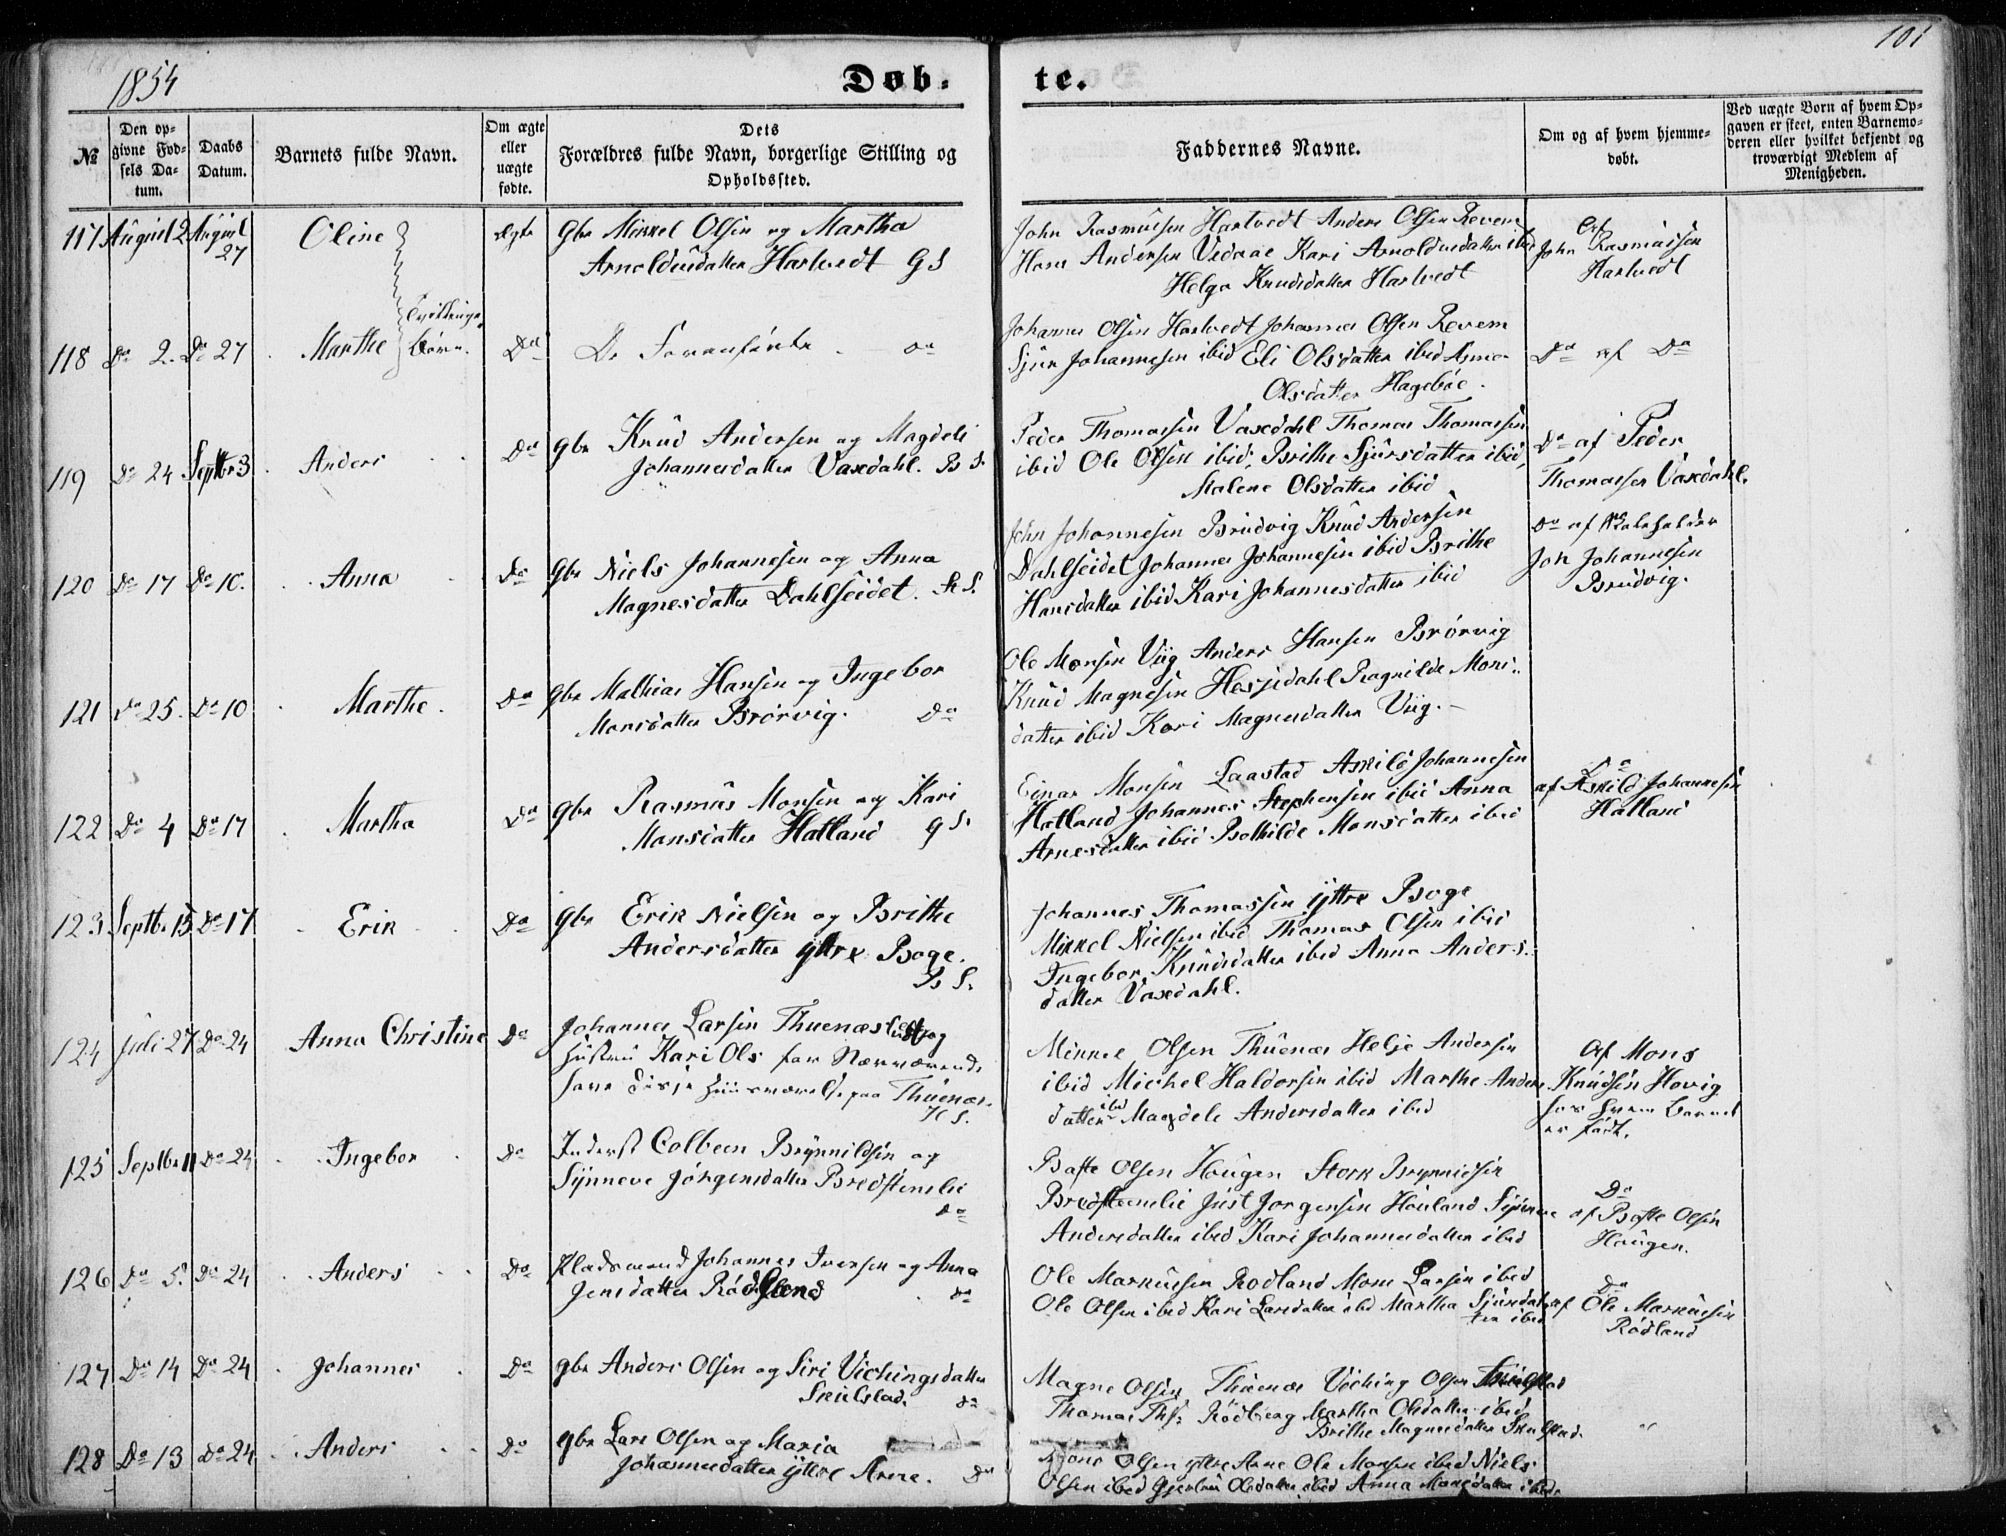 1854
101
Døb-
te.
№
Den op-
givne Fød-
sels Da-
tum.
Daabs
Datum.
Barnets fulde Navn.
Om ægte
eller
uægte
fødte.
Dets
Forældres fulde Navn, borgerlige Stilling og
Opholdssted.
Faddernes Navne.
Om og af hvem hjemme-
døbt.
Ved uægte Børn af hvem Op-
gaven er skeet, enten Barnemo-
deren eller hvilket bekjendt og
troværdigt Medlem af
Menigheden.
117 August 2 August
27
Oline
ægte
Gbr Mikkel Olsen og Martha
Arnoldusdatter Hartvedt GS
John Rasmussen Hartvedt Anders Olsen Revem
Hans Andersen Vedaae Kari Arnoldusdatter ibid
Helga Knudsdatter Hartvedt
Af
John Rasmussen
Hartvedt
118 Do 2. Do 27
Marthe
Tvillinge
børn.
Do
De Foranførte
Do
Johannes Olsen Hartvedt Johannes Olsen Revem
Sjur Johannesen ibid Eli Olsdatter ibid Anna
Olsdatter Hageböe.
Do af Do
119 Do 24 Septbr 3
Anders
Do
gbr Knud Andersen og Magdeli
Johannesdatter Vaxedahl. Bs S.
Peder Thomassen Vaxedahl Thomas Thomassen
ibid Ole Olsen ibid, Brithe Sjursdatter ibid,
Malene Olsdatter ibid
Do af Peder
Thomassen Vaxedahl.
120 Do 17 Do 10.
Anna
Do
Gbr Niels Johannesen og Anna
Magnesdatter Dahlseidet. St S.
John Johannesen Brudvig Knud Andersen
Dahlseidet Johannes Johannesen ibid Brithe
Hansdatter ibid Kari Johannesdatter ibid
Do af Skoleholder
Joh Johannesen
Brudvig.
121 Do 25. Do 10
Marthe.
Do
gbr Mathias Hansen og Ingebor
Monsdatter Brörvig. Do
Ole Monsen Viig Anders Hansen Brörvig
Knud Magnesen Hesjedahl Ragnilde Mons-
datter ibid Kari Magnesdatter Viig.
122 Do 4 Do 17
Martha
Do
gbr Rasmus Monsen og Kari
Monsdatter Hatland G S.
Einar Monsen Laastad Askild Johannesen
Hatland Johannes Stephensen ibid Anna
Arnesdatter ibid Bothilde Monsdatter ibid
Do
af Askild Johannesen
Hatland
123 Septbr 15 Do 17
Erik
Do
gbr Erik Nielsen og Brithe
Andersdatter yttre Boge.
Bs S.
Johannes Thomassen yttre Boge
Mikkel Nielsen ibid Thomas Olsen ibid
Ingebor Knudsdatter ibid Anna Anders-
datter Vaxedahl.
124 Juli 27 Do 24
Anna Christine
Do
Johannes Larsen Thuenæs og
Hustru Kari Ols for Nærværende
have disse Huusværelse paa Thuenæs.
H S.
Mikkel Olsen Thuenæs Helje Andersen
ibid Michel Haldorsen ibid Marthe Anders
datter ibid Magdele Andersdatter ibid
Af Mons
Knudsen Hovig
hos hvem Barnet
er født.
125 Septbr 11 Do 24
Ingebor
Do
Inderst Colbeen Brynnildsen og
Synneve Jörgensdatter Bredstenslie
Do
Bofte Olsen Hougen Stork Brynnildsen
Bredstenslie Just Jorgensen Houland Synneve
Andersdatter ibid Kari Johannesdatter ibid
Do
af Bofte Olsen
Hougen.
126 Do 5. Do 24
Anders
Do
Pladsmand Johannes Iversen og Anna
Jensdatter Rødland Do
Ole Markusen Rodland Mons Larsen ibid
Ole Olsen ibid Kari Larsdatter ibid Martha Sjursdat-
ter ibid
Do
af Ole Markusen
Rödland
127 Do 14 Do 24
Johannes
Do
gbr Anders Olsen og Siri Vichingsdatter
Skulstad. Do
Magne Olsen Thuenæs Viching Olsen Skulstad
Thomas Ths: Rödberg Martha Olsdatter ibid
Brithe Magnesdatter Skulstad.
128 Do 13 Do 24
Anders
Do
gbr Lars Olsen og Maria
Johannesdatter yttre Arne. Do
Mons Olsen yttre Arne Ole Monsen ibid Niels
Olsen ibid Gjertrui Olsdatter ibid Anna Monsdatter ibid.